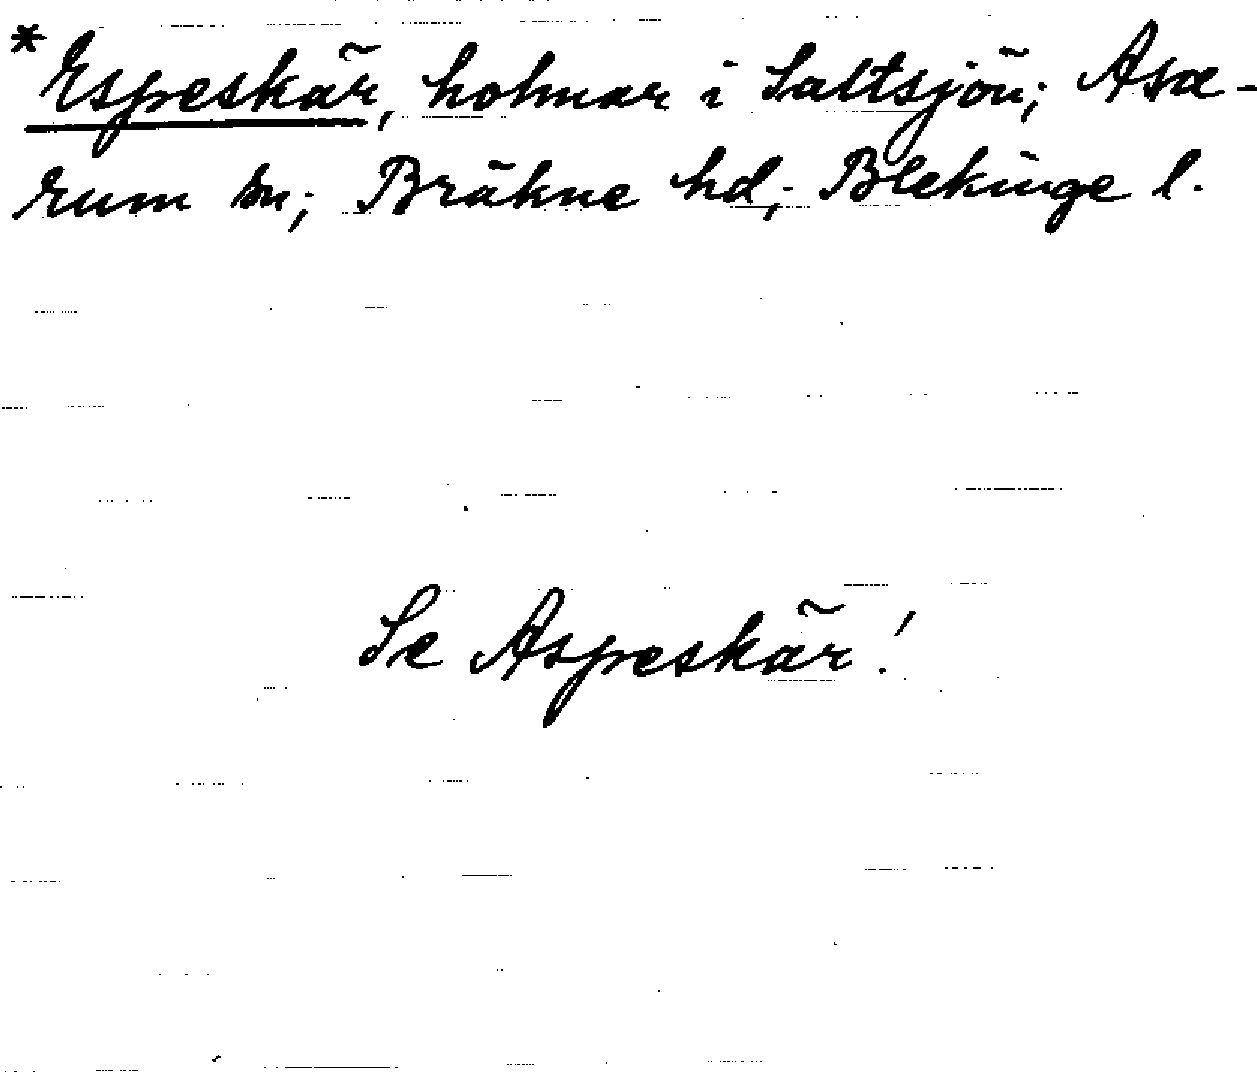 *Espeskär, holmar i Saltsjön; Asa-
rum sn; Bräkne hd; Blekinge l.
Se Aspeskär!